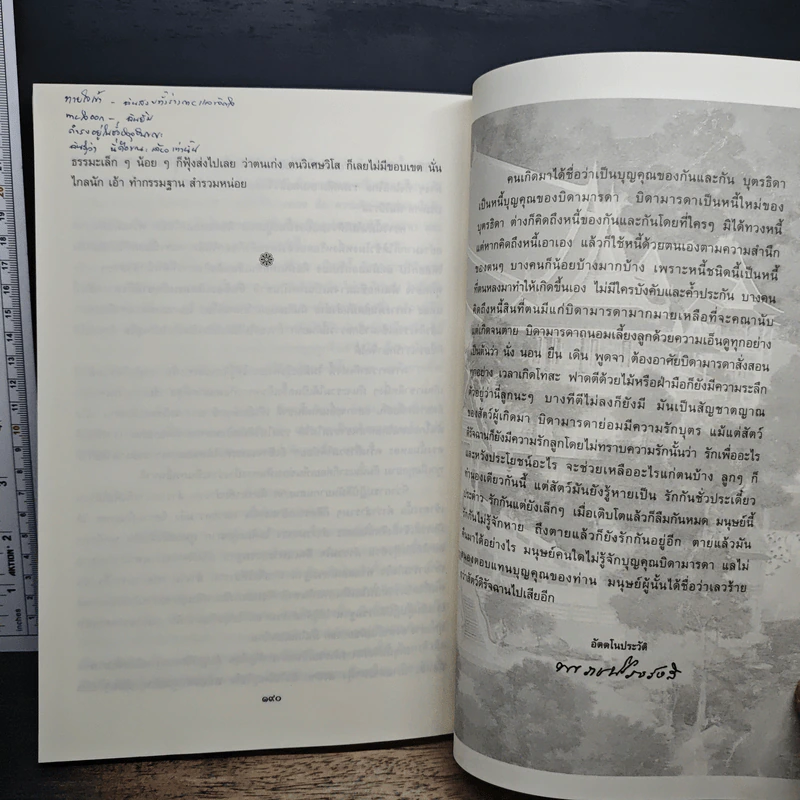 ธรรมะเล็ก ๆ น้อย ๆ ก็ฟุ้งส่งไปเลย ว่าตนเก่ง ตนวิเศษวิโส ก็เลยไม่มีขอบเขต นั่น
ไกลนัก เอ้า ทำกรรมฐาน สำรวมหน่อย
๑๙๐
คนเกิดมาได้ชื่อว่าเป็นบุญคุณของกันและกัน บุตรธิดา
เป็นหนี้บุญคุณของบิดามารดา บิดามารดาเป็นหนี้ใหม่ของ
บุตรธิดา ต่างก็คิดถึงหนี้ของกันและกันโดยที่ใครๆ มิได้ทวงหนี้
แต่หากคิดถึงหนี้เอาเอง แล้วก็ใช้หนี้ด้วยตนเองตามความสำนึก
ของตนๆ บางคนก็น้อยบ้างมากบ้าง เพราะหนี้ชนิดนี้เป็นหนี้
ที่ตนหลงมาทำให้เกิดขึ้นเอง ไม่มีใครบังคับและค้ำประกัน บางคน
คิดถึงหนี้สินที่ตนมีแก่บิดามารดามากมายเหลือที่จะคณานับ
แต่เกิดจนตาย บิดามารดาถนอมเลี้ยงลูกด้วยความเอ็นดูทุกอย่าง
เป็นต้นว่า นั่ง นอน ยืน เดิน พูดจา ต้องอาศัยบิดามารดาสั่งสอน
ทุกอย่าง เวลาเกิดโทสะ ฟาดตีด้วยไม้หรือฝ่ามือก็ยังมีความระลึก
ตัวอยู่ว่านี่ลูกนะๆ บางทีตีไม่ลงก็ยังมี มันเป็นสัญชาตญาณ
ของสัตว์ผู้เกิดมา บิดามารดาย่อมมีความรักบุตร แม้แต่สัตว์
ดิรัจฉานก็ยังมีความรักลูกโดยไม่ทราบความรักนั้นว่า รักเพื่ออะไร
และหวังประโยชน์อะไร จะช่วยเหลืออะไรแก่ตนบ้าง ลูกๆ ก็
ทำนองเดียวกันนี้ แต่สัตว์มันยังรู้หายเป็น รักกันชั่วประเดี๋ยว
ประด๋าว รักกันแต่ยังเล็กๆ เมื่อเติบโตแล้วก็ลืมกันหมด มนุษย์นี้
รักกันไม่รู้จักหาย ถึงตายแล้วก็ยังรักกันอยู่อีก ตายแล้วมัน
มาได้อย่างไร มนุษย์คนใดไม่รู้จักบุญคุณบิดามารดา แลไม่
ตอบแทนบุญคุณของท่าน มนุษย์ผู้นั้นได้ชื่อว่าเลวร้าย
กว่าสัตว์ดิรัจฉานไปเสียอีก
อัตตโนประวัติ